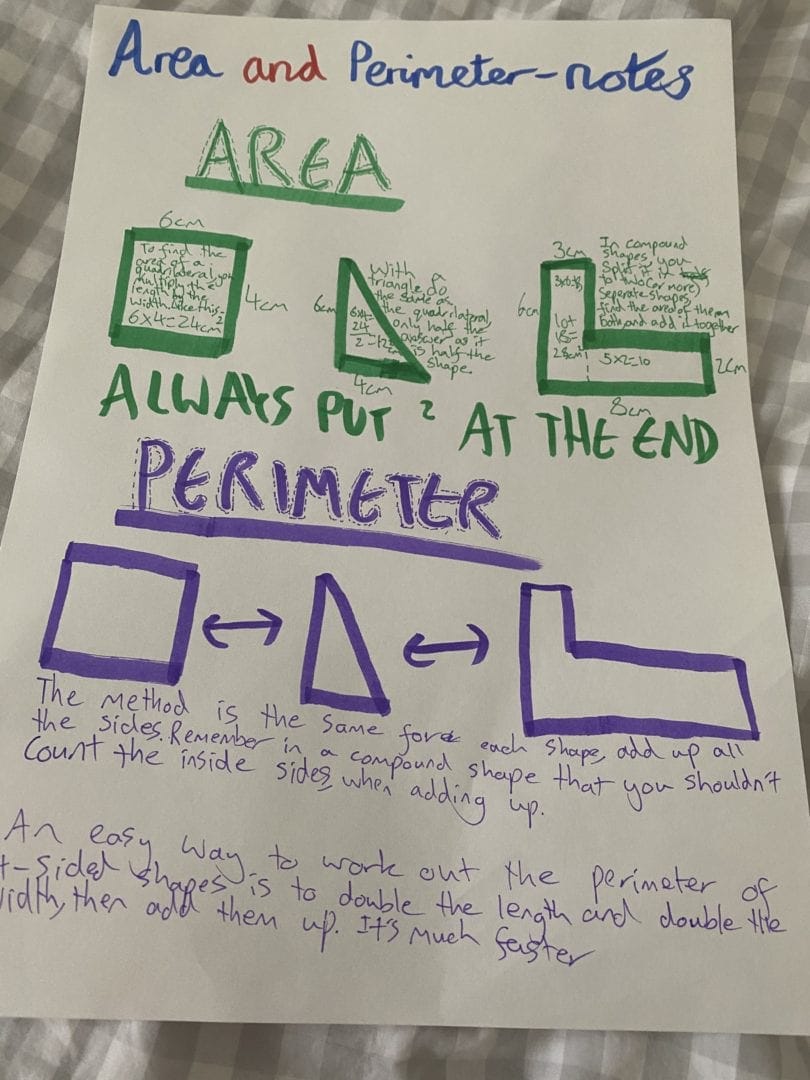 Area and Perimeter-notes
AREA
6cm
To find the
area of a
quadrilateral, you
multiply the
length by the
width like this-
6x4=24cm²
4cm
6cm
With a
triangle, do
the same as
the quadrilateral,
only half the
answer as it
is half the
shape.
6x4=
24
2
4cm
3cm
In compound
shapes, you
Split it
to two (or more)
Seperate shapes,
find the area of them
both and add it together
6cm
10+
18=
28cm²
5x2=10
2cm
8cm
ALWAYS PUT ² AT THE END
PERIMETER
The method is the same for each shape, add up all
the sides. Remember in a compound shape that you shouldn't
Count the inside sides, when adding up.
An easy way to work out the perimeter of
-sided shapes is to double the length and double the
idth, then add them up. It's much faster